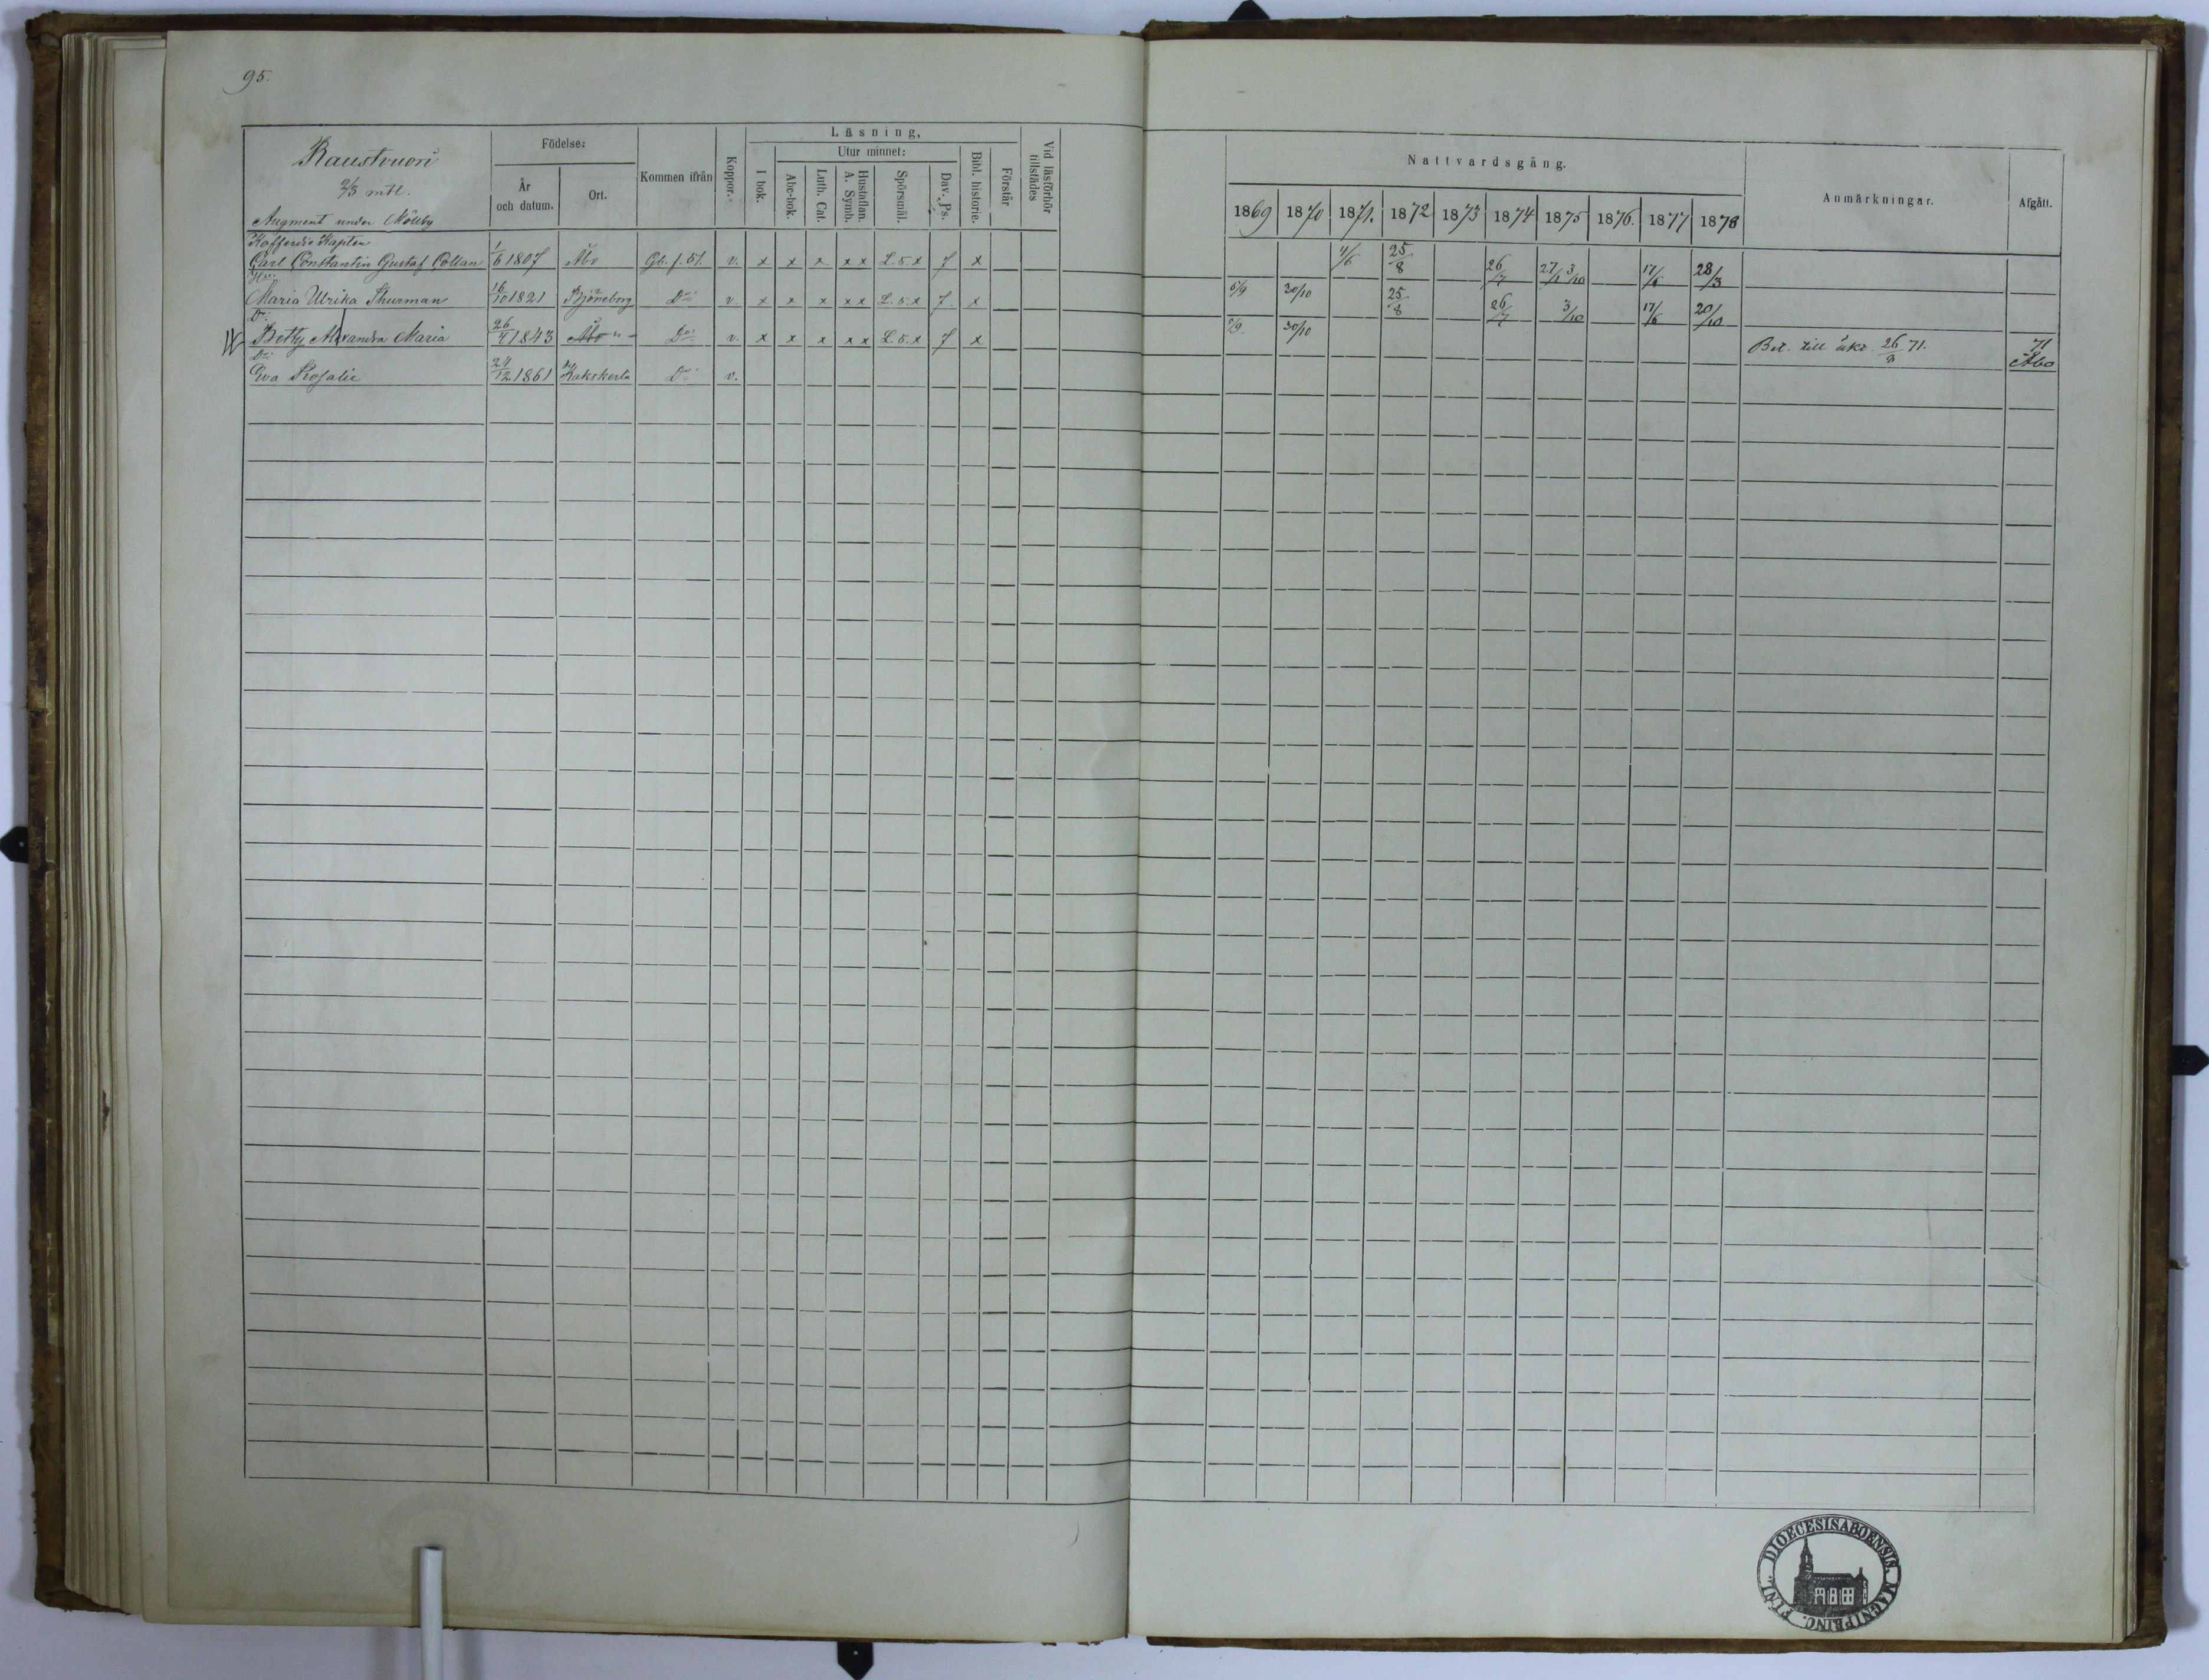 95.
Raustvuori
2/3 mtl.
Augment under Mölleby
Födelse:
År och datum.
Ort.
Kommen ifrån
Koppor.
Läsning,
I bok.
Utur minnet:
Abc-bok.
Luth. Cat.
Hustaflan. A. Symb.
Spörsmål.
Dav. Ps.
Bibl. historie.
Förstår
Vid läsförhör tillstädes
Nattvardsgång.
1869 1870 1871. 1872 1873 1874 1875 1876. 1877 1878
Anmärkningar.
Afgått.
Kofferdie Kapten
Carl Constantin Gustaf Collan 1/6 1807 Åbo Gl. f. 51. v. x x x x x L. 5. x 7 x 4/6 25/8 26/7 27/1 3/10 17/6 28/3
Hu:
Maria Ulrika Thurman 16/10 1821 Björneborg D:o v. x x x x x L. 5. x 7. x 5/9 30/10 25/8 26/7 3/10 17/6 20/10
D:
Betty Alexandra Maria 26/4 1843 Åbo D:o v. x x x x x L. 5. x 7 x 5/9. 30/10 Bet. till äkt. 26/3 71. 71 Åbo
D:
Eva Rosalie 24/12 1861 Kakskerta D:o v.
DIOECESIS ABOENSIS. MAGNI PRINC. FINL.